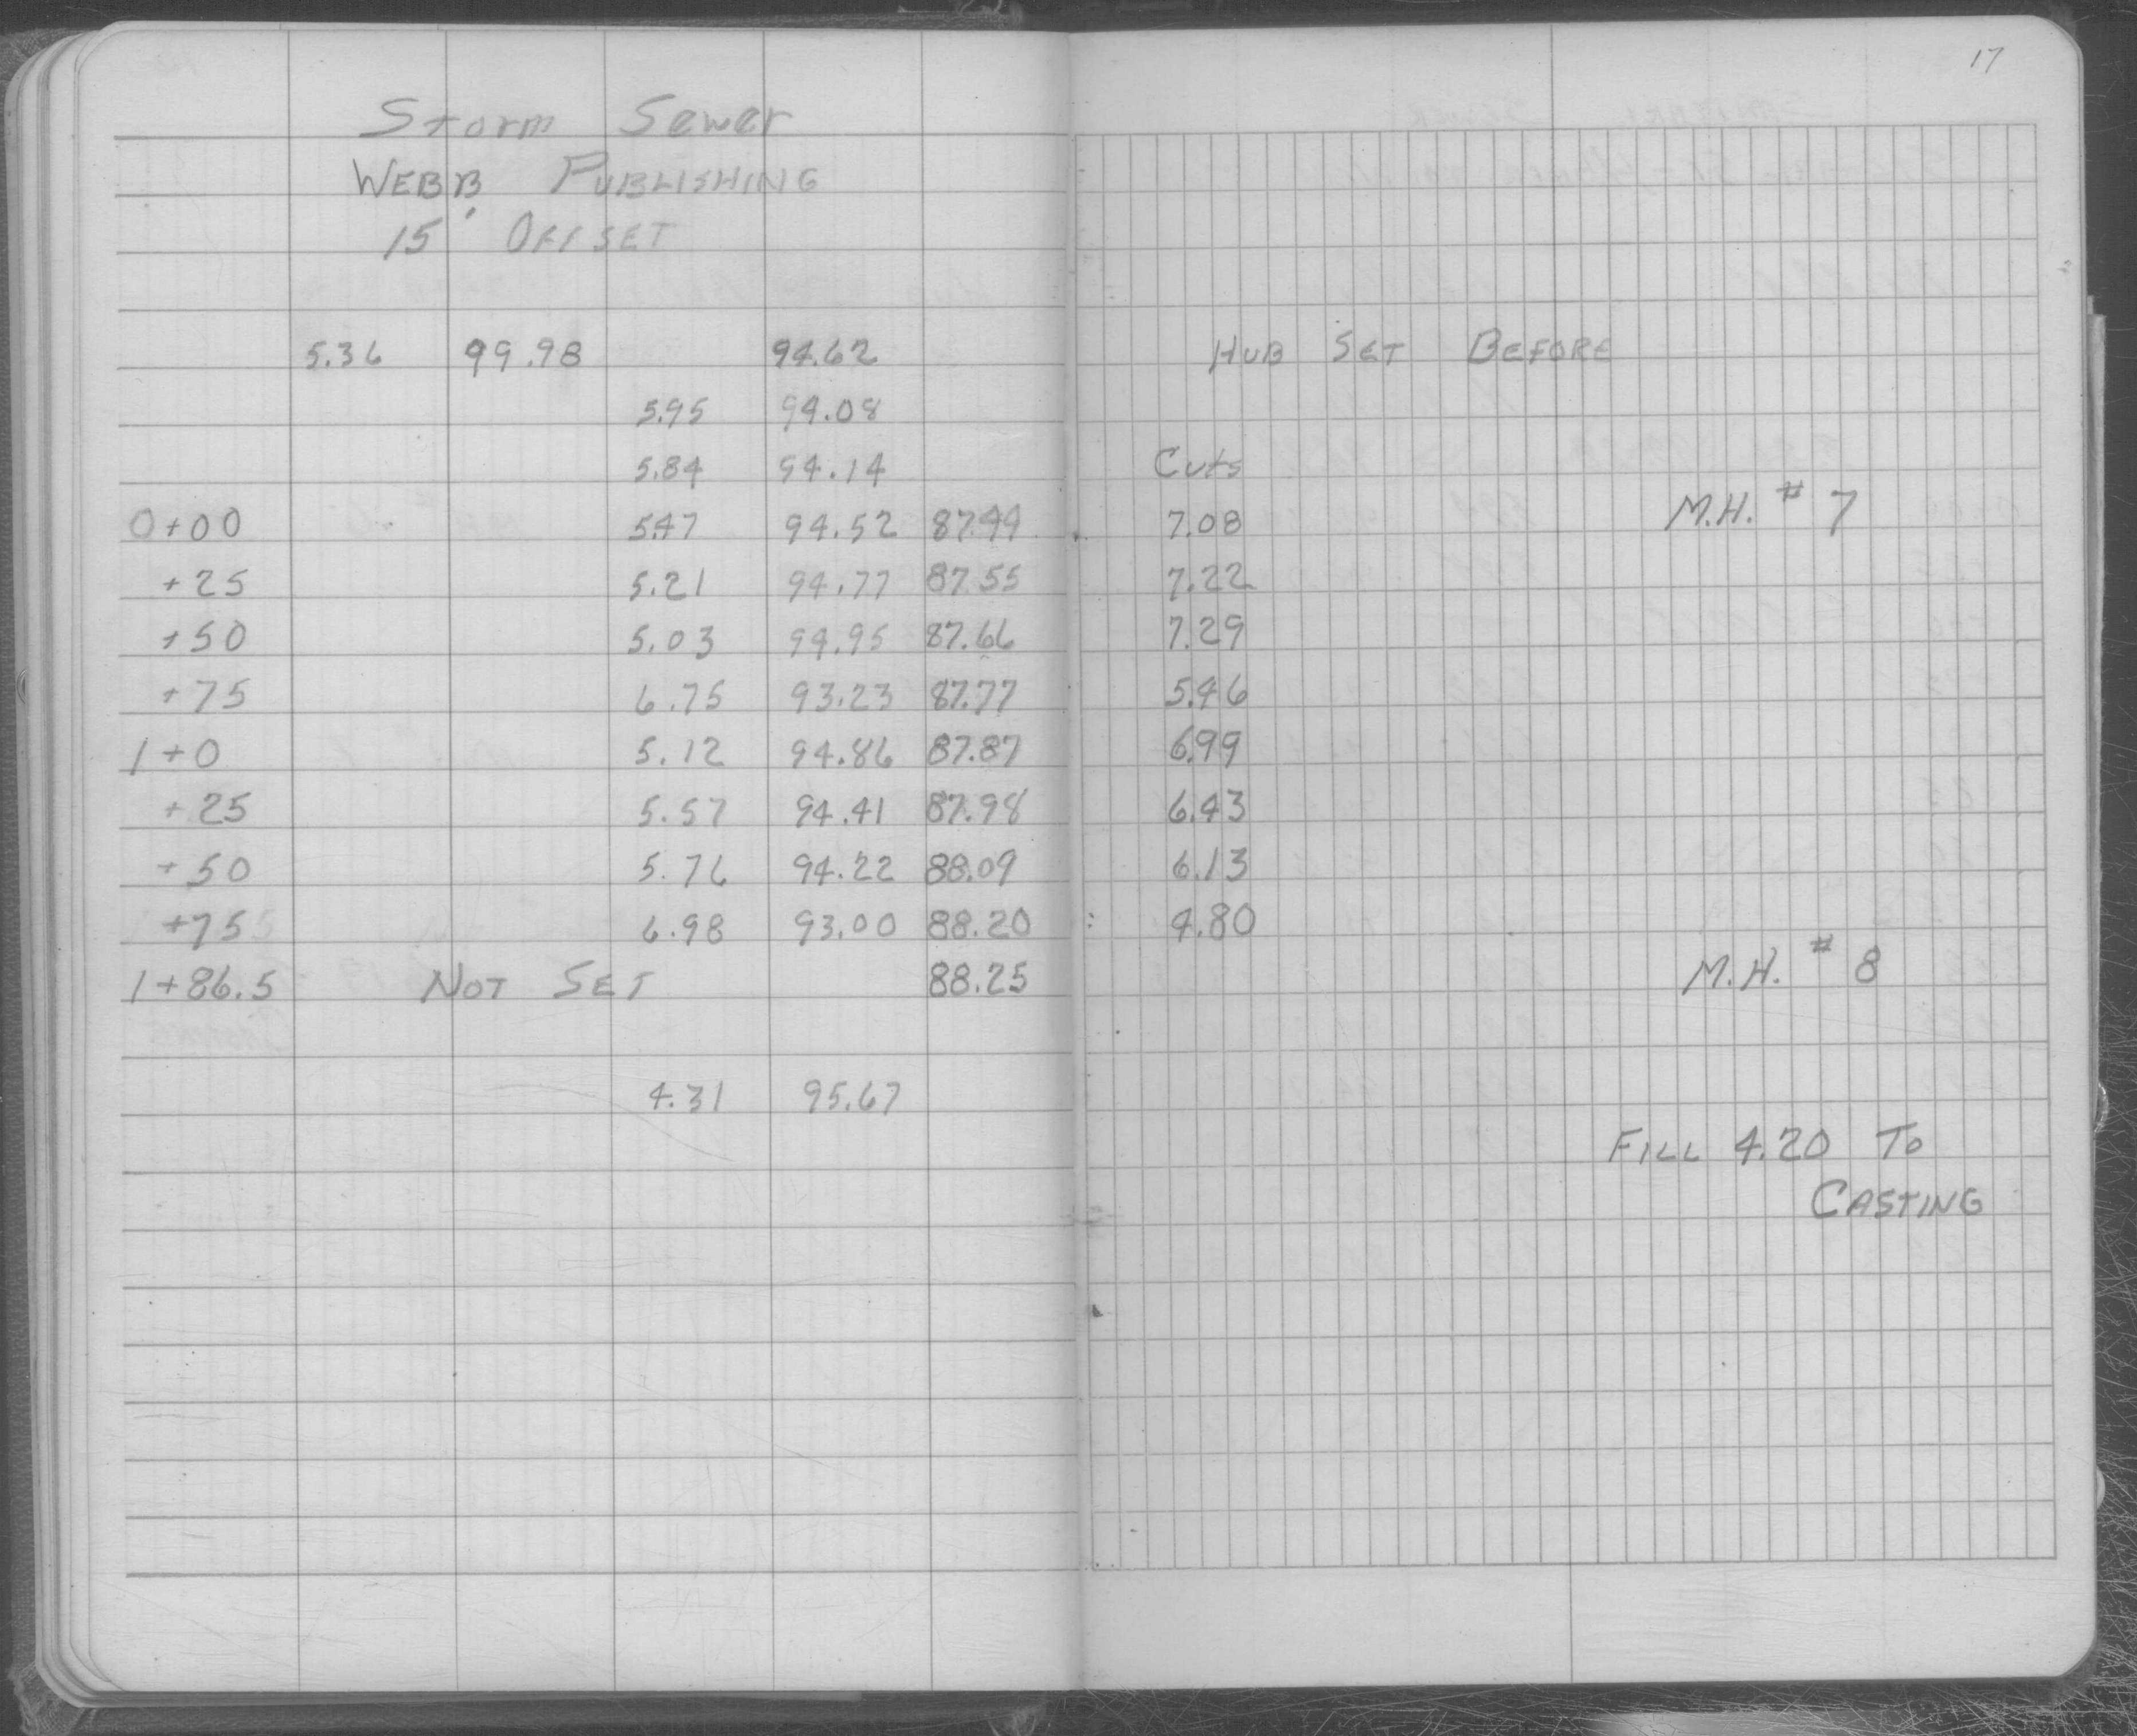 17
Storm Sewer
WEBB PUBLISHING
15' OFFSET
5.36 99.98 94.62 HUB SET BEFORE
5.95 94.08
5.84 94.14 Cuts
0+00 5.47 94.52 87.44 7.08 M.H. # 7
+25 5.21 94.77 87.55 7.22
+50 5.03 94.95 87.66 7.29
+75 6.75 93.23 87.77 5.46
1+0 5.12 94.86 87.87 6.99
+25 5.57 94.41 87.98 6.43
+50 5.76 94.22 88.09 6.13
+75 6.98 93.00 88.20 4.80
1+86.5 NOT SET 88.25 M.H. # 8
4.31 95.67
FILL 4.20 TO
CASTING